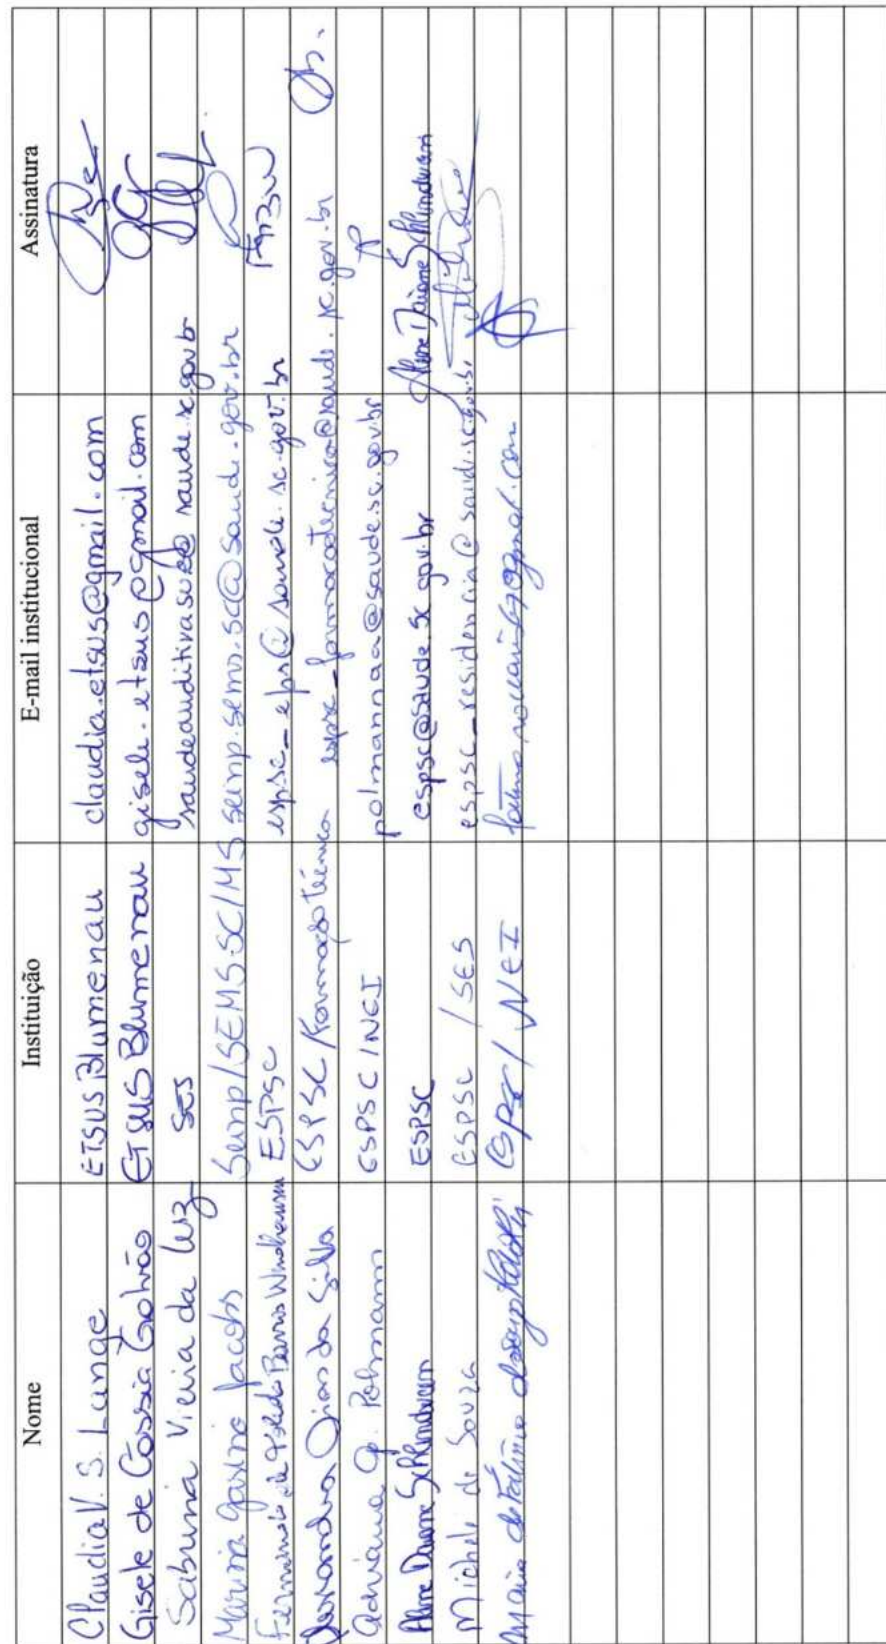 Nome Instituição E-mail institucional Assinatura
Claudia V. S. Lange ETSUS Blumenau claudia.etsus@gmail.com
Gisele de Cássia Galvão ETSUS Blumenau gisele.etsus@gmail.com
Sabrina Vieira da Luz SES saudeauditiva @saude.sc.gov.br
Marina Gasino Jacobs Seinp/SEMS-SC/MS seinp.sems.sc@saude.gov.br
Fernanda de Windhausen ESPSC espsc_eps@saude.sc.gov.br
Dias da Silva ESPSC/Formação Técnica espsc_formacaotecnica@saude.sc.gov.br
Adriana Polmann ESPSC/NEI polmannaa@saude.sc.gov.br
Aline Daiane Schlindwein ESPSC espsc@saude.sc.gov.br Aline Daiane Schlindwein
Michele de Souza ESPSC /SES espsc_residencia@saude.sc.gov.br
Maria de Fátima de Souza ESPSC/NEI